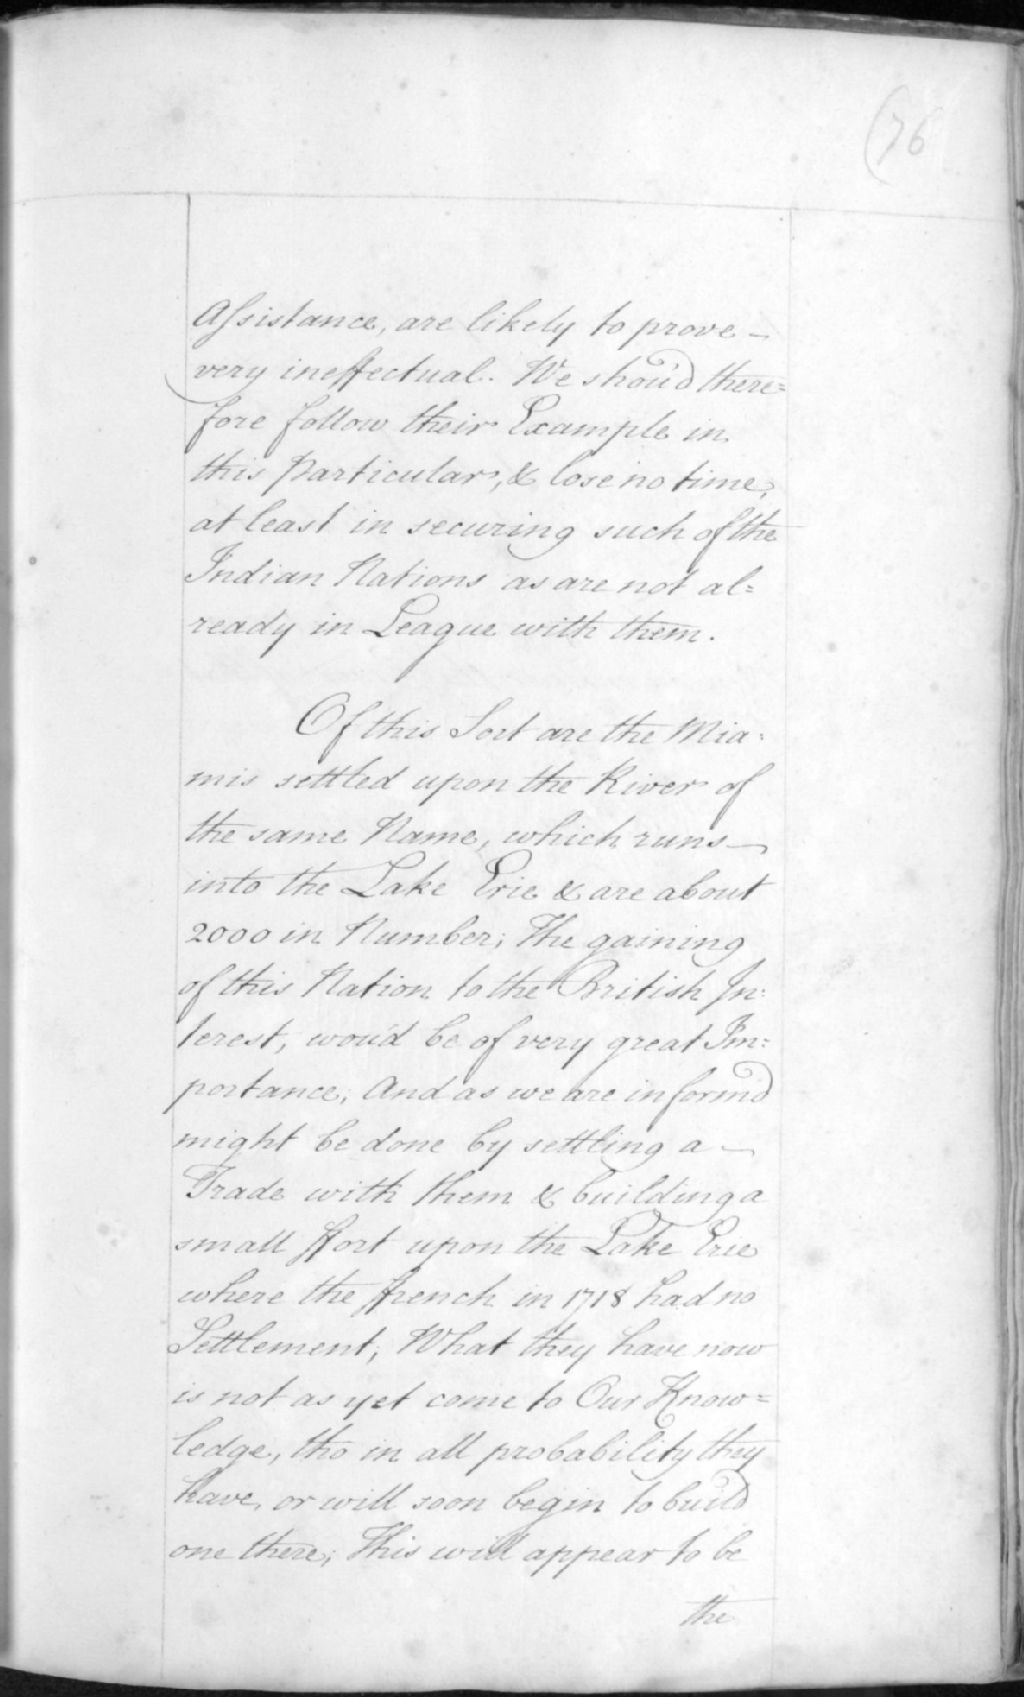 (76
Assistance, are likely to prove –
very ineffectual. We shou'd there=
fore follow their Example in
this Particular, & lose no time,
at least in securing such of the
Indian Nations as are not al=
ready in League with them.
Of this Sort are the Mia-
mis settled upon the River of
the same Name, which runs –
into the Lake Erie & are about
2000 in Number; The gaining
of this Nation to the British In-
terest, wou'd be of very great Im-
portance; And as we are inform'd
might be done by settling a –
Trade with them & building a
small ffort upon the Lake Erie
where the ffrench in 1718 had no
Settlement; What they have now
is not as yet come to Our Know=
ledge, tho in all probability they
have, or will soon begin to build
one there; This will appear to be
the